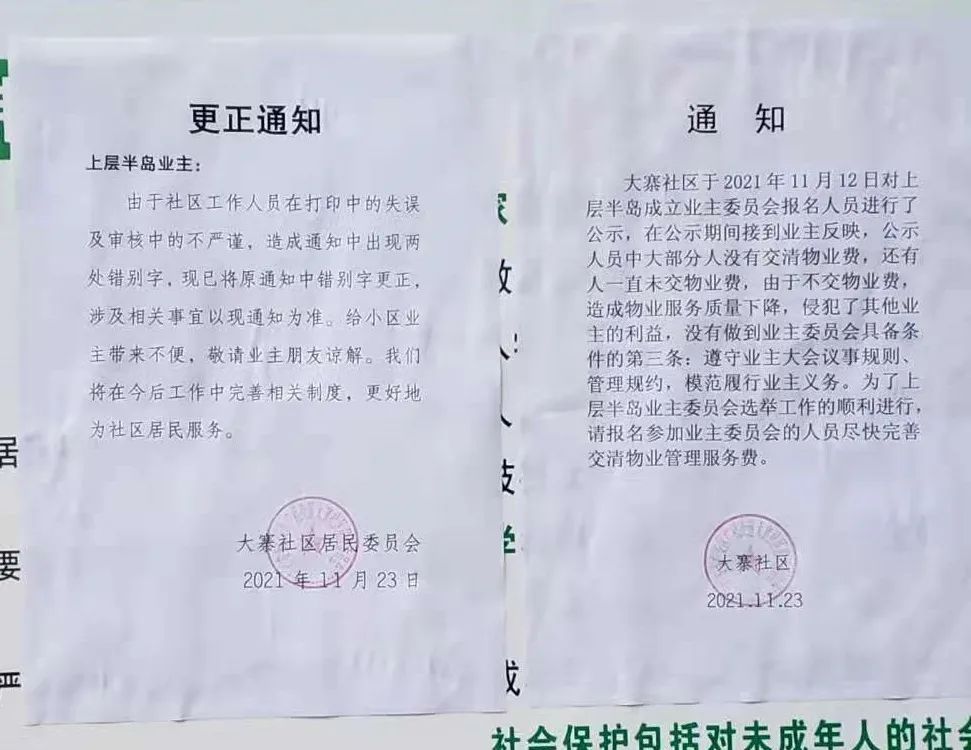 更正通知
上层半岛业主：
由于社区工作人员在打印中的失误
及审核中的不严谨，造成通知中出现两
处错别字，现已将原通知中错别字更正，
涉及相关事宜以现通知为准。给小区业
主带来不便，敬请业主朋友谅解。我们
将在今后工作中完善相关制度，更好地
为社区居民服务。
大寨社区居民委员会
2021 年 11 月 23 日
通 知
大寨社区于2021年11月12日对上
层半岛成立业主委员会报名人员进行了
公示，在公示期间接到业主反映，公示
人员中大部分人没有交清物业费，还有
人一直未交物业费，由于不交物业费，
造成物业服务质量下降，侵犯了其他业
主的利益，没有做到业主委员会具备条
件的第三条：遵守业主大会议事规则、
管理规约，模范履行业主义务。为了上
层半岛业主委员会选举工作的顺利进行，
请报名参加业主委员会的人员尽快完善
交清物业管理服务费。
大寨社区
2021.11.23
居
要
严
社会保护包括对未成年人的社会